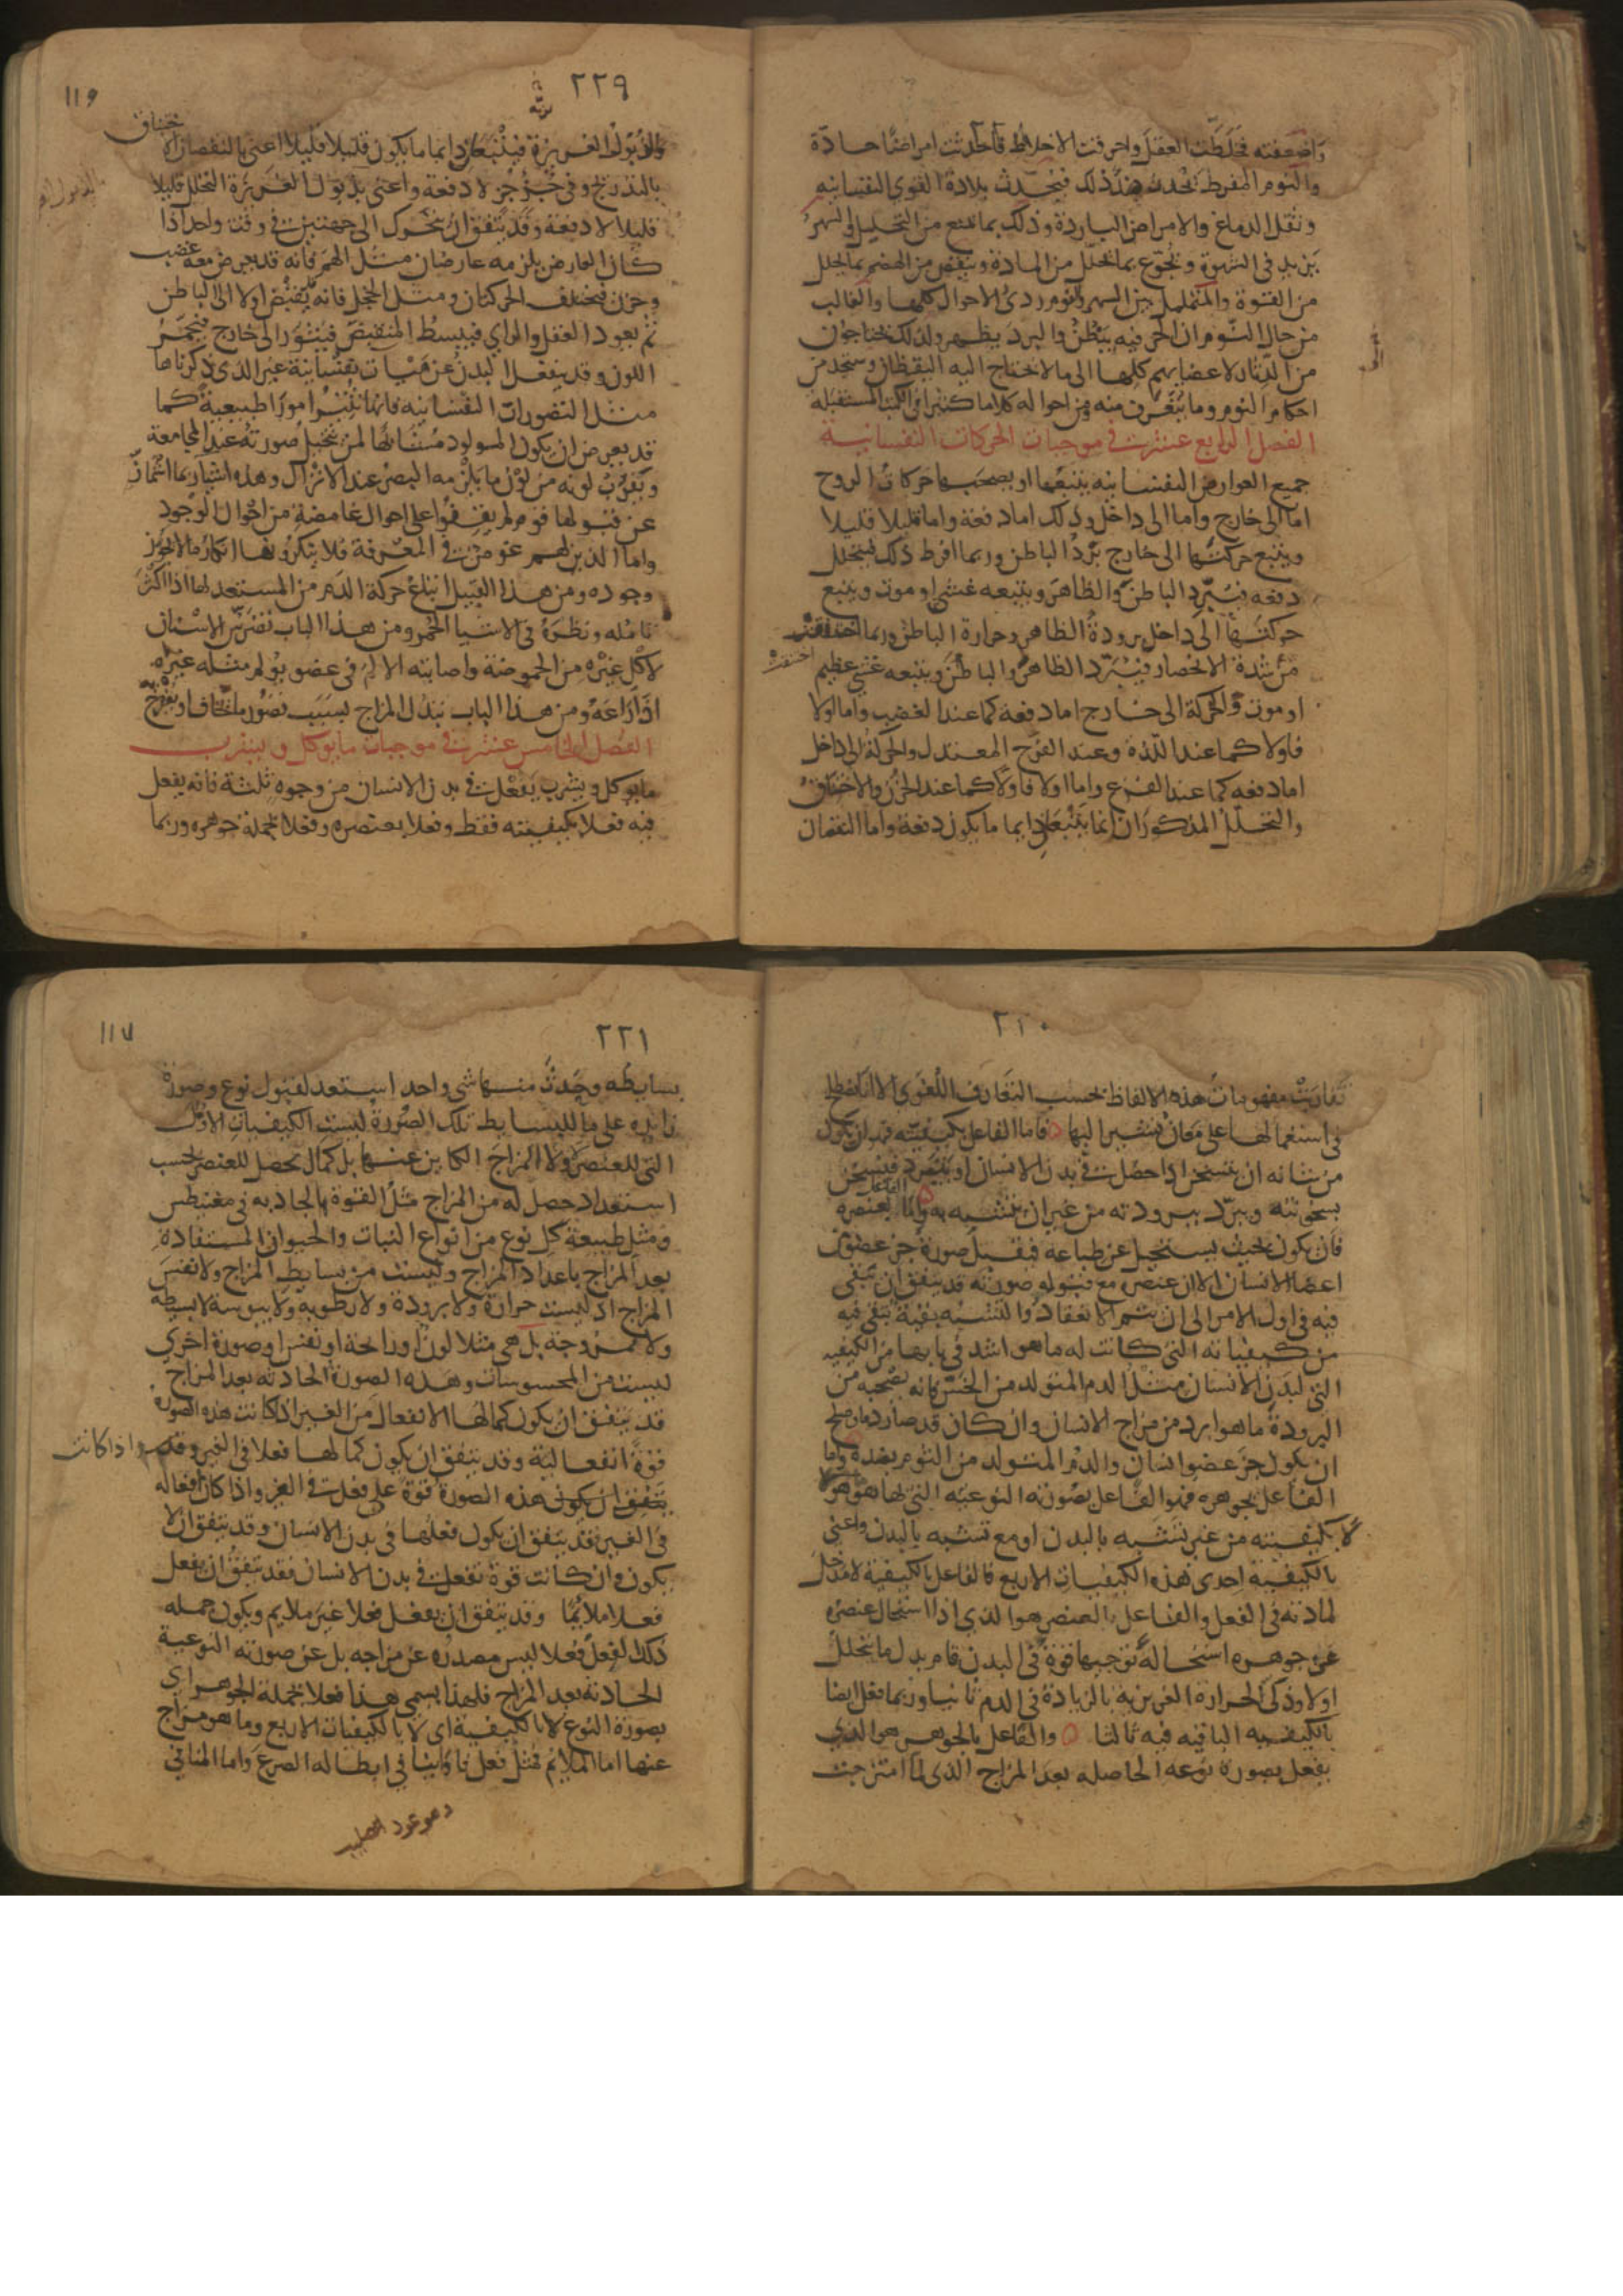 واضعفته فخلطت العقل واحرقت الاخلاط فاحدثت امراضا حادة
والنوم المفرط يحدث ضد ذلك فيحدث بلادة القوى النفسانيه
وثقل الدماغ والامراض الباردة وذلك بما يمنع من التحليل والسهر
يزيد في الشهوة ويجوع بما يحلل من المادة وينقص من الهضم بما يحلل
من القوة والتململ بين السهر والنوم ردئ الاحوال كلها والغالب
من حال النوم ان الحر فيه يبطن والبرد يظهر ولذلك يحتاجون
من الدثار لاعضايهم كلها الى ما لا يحتاج اليه اليقظان وستجد من
احكام النوم وما يتعرف منه ومن احواله كلاما كثيرا في الكتب المستقبلة
الفصل الرابع عشر في موجبات الحركات النفسانية
جميع العوارض النفسانيه يتبعها او يصحبها حركات الروح
اما الى خارج واما الى داخل وذلك اما دفعة واما قليلا قليلا
ويتبع حركتها الى خارج برد الباطن وربما افرط ذلك فيتحلل
دفعه فيبرد الباطن والظاهر ويتبعه غشي او موت ويتبع
حركتها الى داخل برودة الظاهر وحرارة الباطن وربما اختنقت
من شدة الانحصار فيبرد الظاهر والباطن ويتبعه غشي عظيم
اختنقت
او موت والحركة الى خارج اما دفعة كما عند الغضب واما اولا
فاولا كما عند اللذه وعند الفرح المعتدل والحركة الى داخل
اما دفعه كما عند الفزع واما اولا فاولا كما عند الحزن والاختناق
والتحلل المذكوران انما يتبعان دايما ما يكون دفعة واما النقصان
٢٢٩
١١٦
وذبول الغريزة فيتبعان دايما ما يكون قليلا قليلا اعني بالنقصان الاختناق
بالتدريج وفي جزو جزو لا دفعة واعني بذبول الغريزة التحلل قليلا
قليلا لا دفعة وقد يتفق ان يتحرك الى جهتين في وقت واحد اذا
كان العارض يلزمه عارضان مثل الهم فانه قد يعرض معه غضب
وحزن فيختلف الحركتان ومثل الخجل فانه يقبض اولا الى الباطن
ثم يعود العقل والراي فيبسط المنقبض فيثور الى خارج فيحمر
اللون وقد ينفعل البدن عن هيات نفسانية غير الذي ذكرناها
مثل التصورات النفسانيه فانها تثير امورا طبيعية كما
قد يعرض ان يكون المولود مشابها لمن يتخيل صورته عند المجامعة
ويقرب لونه من لون ما يلزمه البصر عند الانزال وهذه اشيا ربما اشماز
عن قبولها قوم لم يقفوا على احوال غامضة من احوال الوجود
واما الذين لهم غوص في المعرفة فلا ينكرونها انكار ما لا يجوز
وجوده ومن هذا القبيل اتباع حركة الدم من المستعد لها اذا اكثر
تامله ونظره في الاشيا الحمر ومن هذا الباب تضرس الاسنان
لاكل غيره من الحموضة واصابته الالم في عضو يولم مثله غيره
اذا راعه ومن هذا الباب تبدل المزاج بسبب تصور ما يخاف او يفرح به
الفصل الخامس عشر في موجبات ما يوكل ويشرب
ما يوكل ويشرب يفعل في بدن الانسان من وجوه ثلثة فانه يفعل
فيه فعلا بكيفيته فقط وفعلا بعنصره وفعلا بجملة جوهره وربما
٢٢٠
تقاربت مفهومات هذه الالفاظ بحسب التعارف اللغوي الا انا نصطلح
في استعمالها على معان نشير اليها فاما الفاعل بكيفيته فهو ان يكون
من شانه ان يتسخن اذا حصل في بدن الانسان او يتبرد فيسخن
بسخونته ويبرد ببرودته من غير ان يتشبه به واما الفاعل بعنصره
فان يكون بحيث يستحيل عن طباعه فيقبل صورة جز عضو من
اعضا الانسان الا ان عنصره مع قبوله صورته قد يتفق ان تبقى
فيه في اول الامر الى ان يتم الانعقاد والتشبه بقية تبقى فيه
من كيفياته التي كانت له ما هو اشد في بابها من الكيفيه
التي لبدن الانسان مثل الدم المتولد من الخس فانه يصحبه من
البرودة ما هو ابرد من مزاج الانسان وان كان قد صار دما وصلح
ان يكون جز عضو انسان والدم المتولد من الثوم بضده واما
الفاعل بجوهره فهو الفاعل بصورته النوعيه التي بها هو هو
لا بكيفيته من غير تشبه بالبدن او مع تشبه بالبدن واعني
بالكيفية احدى هذه الكيفيات الاربع فالفاعل بالكيفية لا مدخل
لمادته في الفعل والفاعل بالعنصر هو الذي اذا استحال عنصره
عن جوهره استحالة توجبها قوة في البدن قام بدل ما يتحلل
اولا وذكى الحرارة الغريزيه بالزيادة في الدم ثانيا وربما فعل ايضا
بالكيفيه الباقيه فيه ثالثا والفاعل بالجوهر هو الذي
يفعل بصورة نوعه الحاصله بعد المزاج الذي لما امتزجت
٢٢١
١١٧
بسايطه وحدث منها شي واحد استعد لقبول نوع وصورة
زايده على ما للبسايط تلك الصورة ليست الكيفيات الاول
التي للعنصر ولا المزاج الكاين عنها بل كمال يحصل للعنصر بحسب
استعداد حصل له من المزاج مثل القوة الجاذبه في مغنطيس
ومثل طبيعة كل نوع من انواع النبات والحيوان المستفادة
بعد المزاج باعداد المزاج وليست من بسايط المزاج ولا نفس
المزاج اذ ليست حرارة ولا برودة ولا رطوبة ولا يبوسة لا بسيطه
ولا ممزوجة بل هي مثلا لون او رائحة او نفس او صورة اخرى
ليست من المحسوسات وهذه الصورة الحادثه بعد المزاج
قد يتفق ان يكون كمالها الانفعال من الغير اذ كانت هذه الصورة
قوة انفعالية وقد يتفق ان يكون كمالها فعلا في الغير
واذا كانت
هذه الصورة قوة على فعل في الغير واذا كان فعاله
في الغير فقد يتفق ان يكون فعلها في بدن الانسان وقد يتفق ان لا
يكون وان كانت قوة تفعل في بدن الانسان فقد يتفق ان يفعل
فعلا ملايما وقد يتفق ان يفعل فعلا غير ملايم ويكون جمله
ذلك الفعل فعلا ليس مصدره عن مزاجه بل عن صورته النوعية
الحادثه بعد المزاج فلهذا يسمى هذا فعلا بجملة الجوهر اي
بصورة النوع لا بالكيفية اي لا بالكيفيات الاربع وما هو مزاج
عنها اما الملايم فمثل فعل فاوانيا في ابطاله الصرع واما المنافي